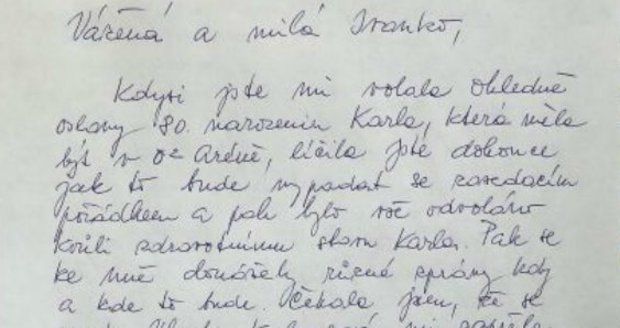 Vážená a milá Ivanko,
Kdysi jste mi volala ohledně
oslavy 80. narozenin Karla, která měla
být v O2 Aréně, líčila jste dokonce
jak to bude vypadat se zasedacím
pořádkem a pak bylo vše odvoláno
kvůli zdravotnímu stavu Karla. Pak se
ke mně donášely různé zprávy kdy
a kde to bude. Čekala jsem, že se